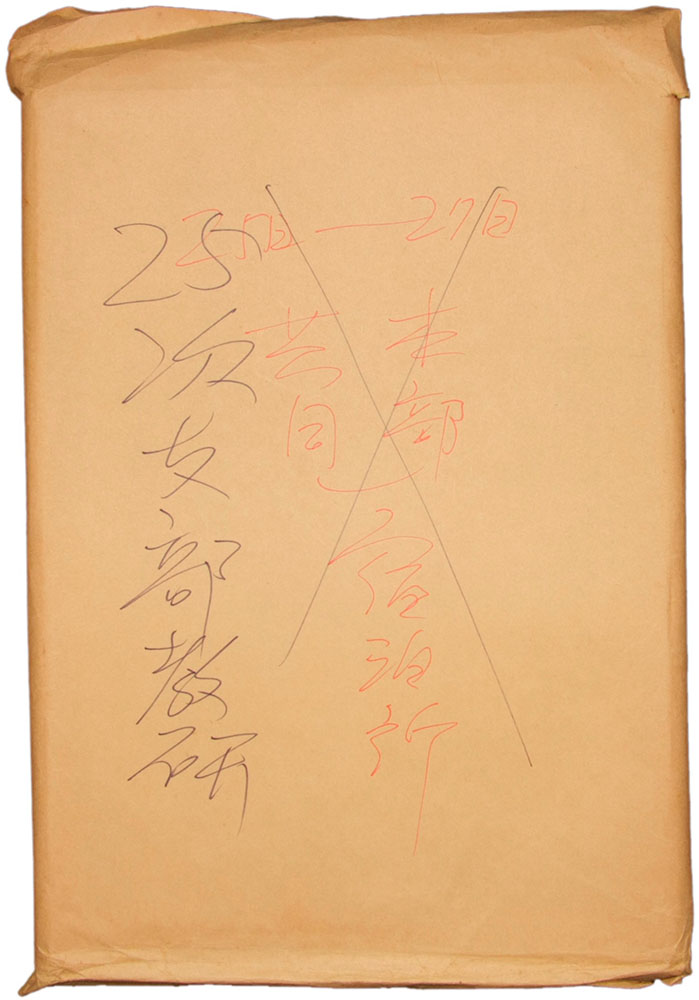 25日―27日
本部宿泊所
共同
25次支部教研